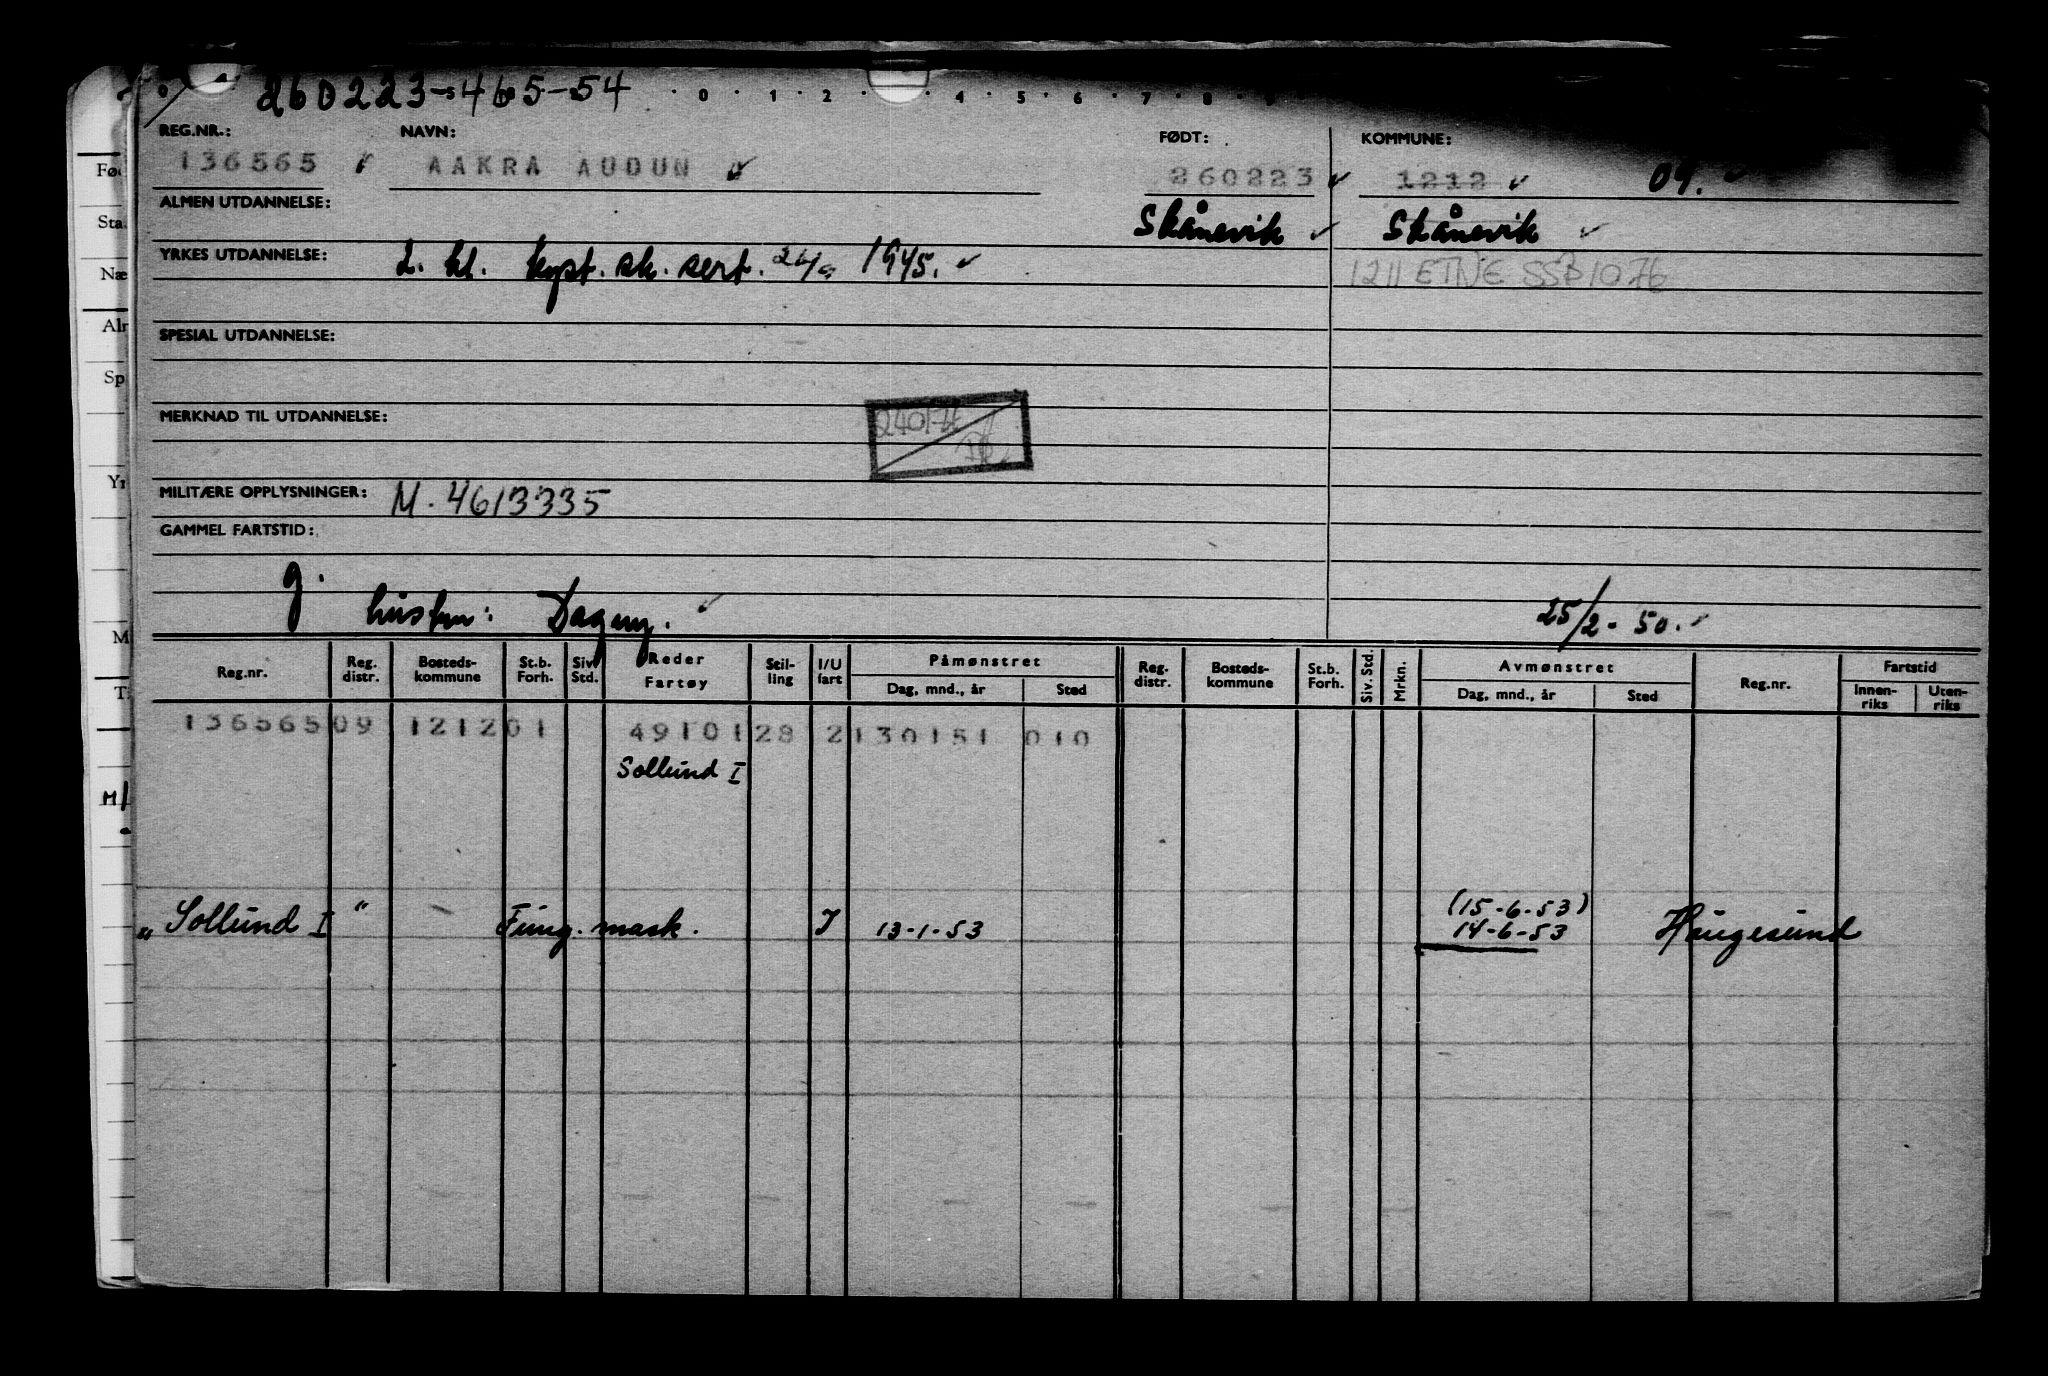 260223-465-54
0 1 2 4 5 6 7 8 9
REG.NR.: NAVN: FØDT: KOMMUNE:
136565 AAKRA AUDUN 260223 1212 04.
ALMEN UTDANNELSE: Skånevik Skånevik
YRKES UTDANNELSE: 2. kl. kyst. sk. sert. 1945.
1211 ETNE SSB 1076
SPESIAL UTDANNELSE:
MERKNAD TIL UTDANNELSE:
MILITÆRE OPPLYSNINGER: M. 4613335
GAMMEL FARTSTID:
g. hustru: Dagny. 25/2-50.
Reg.nr. Reg. distr. Bosteds-kommune St.b. Forh. Siv. Std. Reder Fartøy Stil-ling I/U fart Påmønstret Dag, mnd., år Sted Reg. distr. Bosteds-kommune St.b. Forh. Siv. Std. Mrkn. Avmønstret Dag, mnd., år Sted Reg.nr. Fartstid Innen-riks Uten-riks
136565 09 1212 01 49101 28 2 130151 010
Sollund I
(15-6-53)
„Sollund I" - Fung. mask. I 13-1-53 14-6-53 Haugesund
Fød
Sta.
Næ
Alr
Sp
Yr
M
T.
M